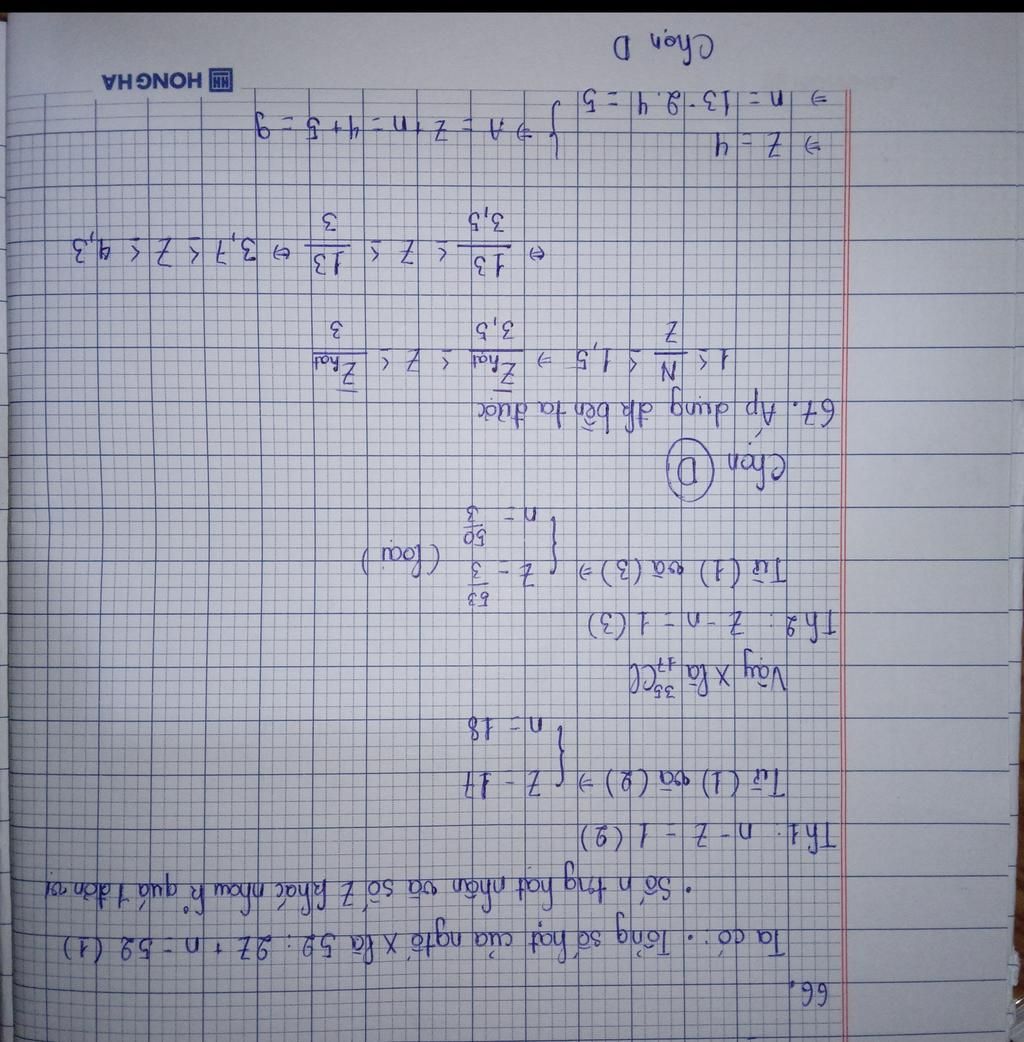 66.
Ta có: • Tổng số hạt của ngtố X là 52: 2Z + n = 52 (1)
• Số n trng hạt nhân và số Z khác nhau k° quá 1 đơn vị
Th1: n - Z = 1 (2)
Từ (1) và (2) ⇒ { Z = 17
n = 18
Vậy X là ³⁵₁₇Cl
Th2: Z - n = 1 (3)
Từ (1) và (3) ⇒ { Z = 53/3
n = 50/3 (loại)
Chọn D
67. Áp dụng đk bền ta được
1 ≤ N/Z ≤ 1,5 ⇒ Σhạt/3,5 ≤ Z ≤ Σhạt/3
⇔ 13/3,5 ≤ Z ≤ 13/3 ⇔ 3,7 ≤ Z ≤ 4,3
⇒ Z = 4
⇒ n = 13 - 2.4 = 5 } ⇒ A = Z + n = 4 + 5 = 9
HONG HA
Chọn D